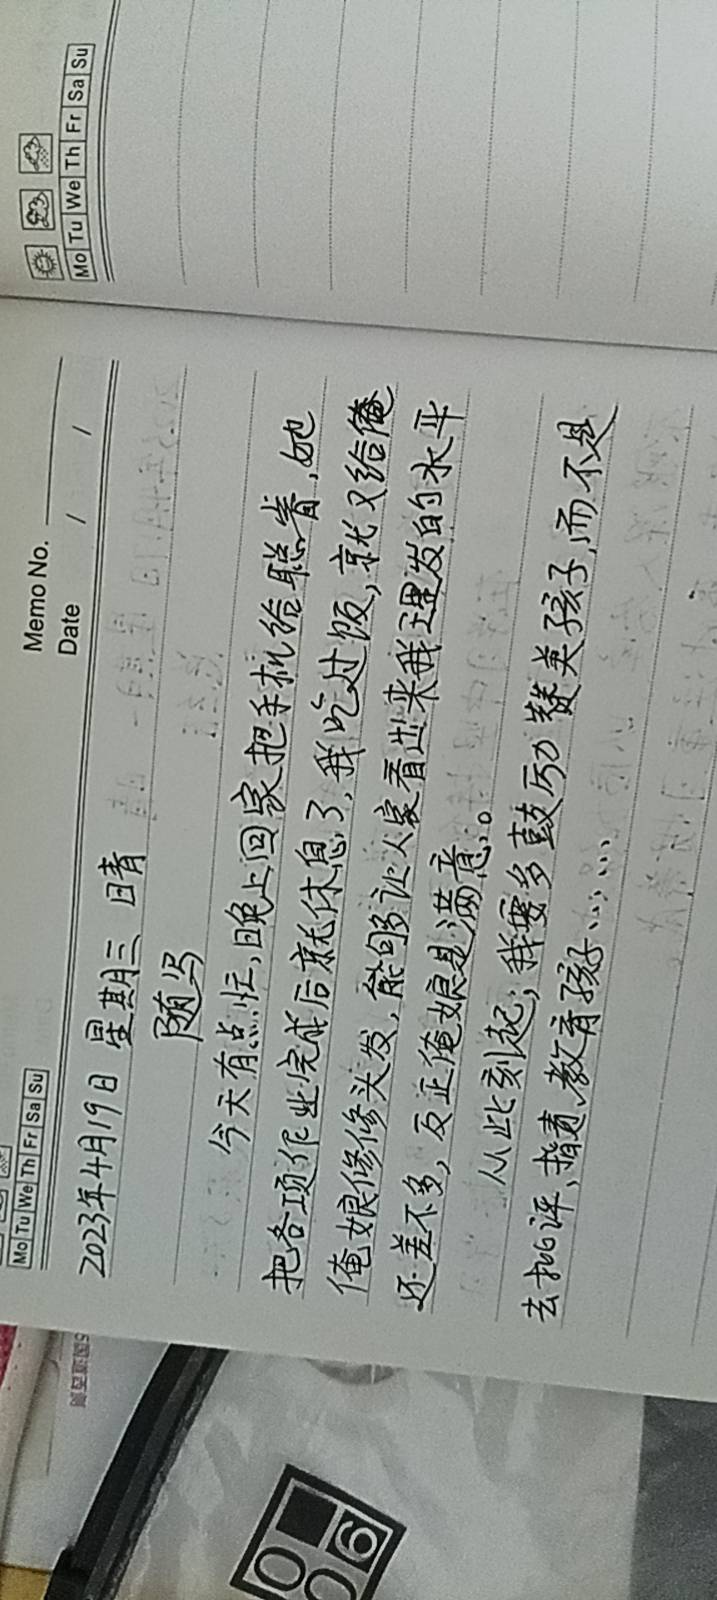 Mo Tu We Th Fr Sa Su
Memo No.
Date / /
2023年4月19日 星期三 晴
随写
今天有点忙,晚上回家把手机给聪睿,她
把各项作业完成后就休息了,我吃过饭,就又给俺
俺娘修修头发,能够让人家看出来我理发的水平
还差不多,反正俺娘是满意。
从此刻起,我要多鼓励赞美孩子,而不是
去批评、指责、教育孩子……
Mo Tu We Th Fr Sa Su
06